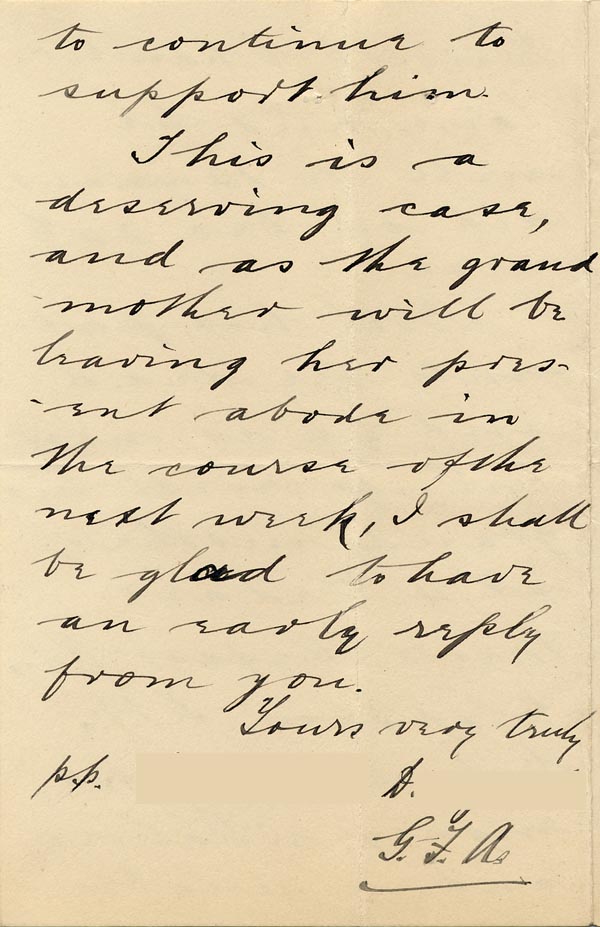 to continue to
support him.
This is a
deserving case,
and as the grand
mother will be
leaving her pres-
-ent abode in
the course of the
next week, I shall
be glad to have
an early reply
from you.
Yours very truly
p.p. D.
G. F. A.